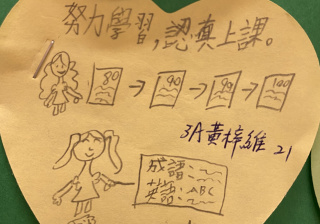 努力學習，認真上課。
80 → 90 → 99 → 100
3A黃梓維 21
成語：
英語：ABC